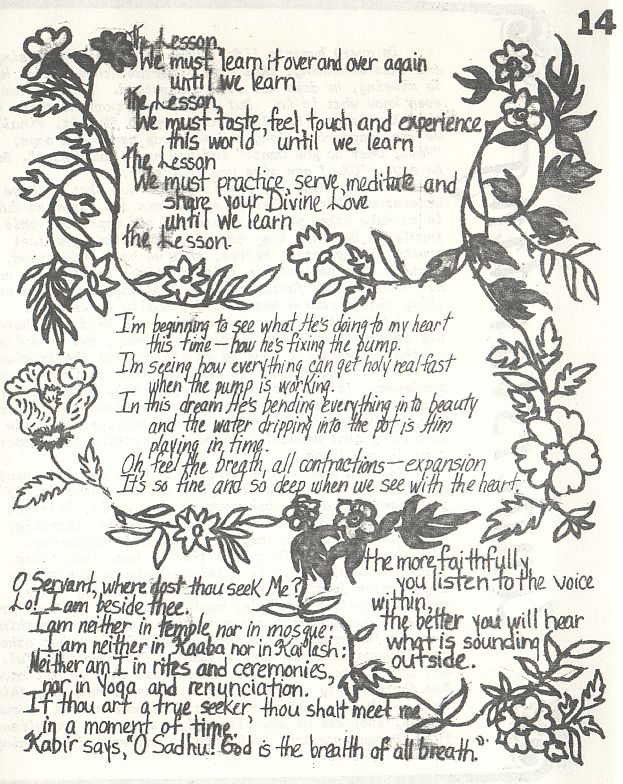 14
The Lesson,
We must learn it over and over again
until we learn
the Lesson,
We must taste, feel, touch and experience
this world until we learn
the Lesson
We must practice, serve, meditate and
share your Divine Love
until we learn
the Lesson.
I'm beginning to see what He's doing to my heart
this time—how he's fixing the pump.
I'm seeing how everything can get holy real fast
when the pump is working.
In this dream He's bending everything into beauty
and the water dripping into the pot is Him
playing in time.
Oh, feel the breath, all contractions—expansion
It's so fine and so deep when we see with the heart.
O Servant, where dost thou seek Me?
Lo! I am beside thee.
I am neither in temple, nor in mosque:
I am neither in Kaaba nor in Kailash:
Neither am I in rites and ceremonies,
nor in Yoga and renunciation.
If thou art a true seeker, thou shalt meet me
in a moment of time.
Kabir says, "O Sadhu! God is the breath of all breath."
the more faithfully
you listen to the voice
within,
the better you will hear
what is sounding
outside.